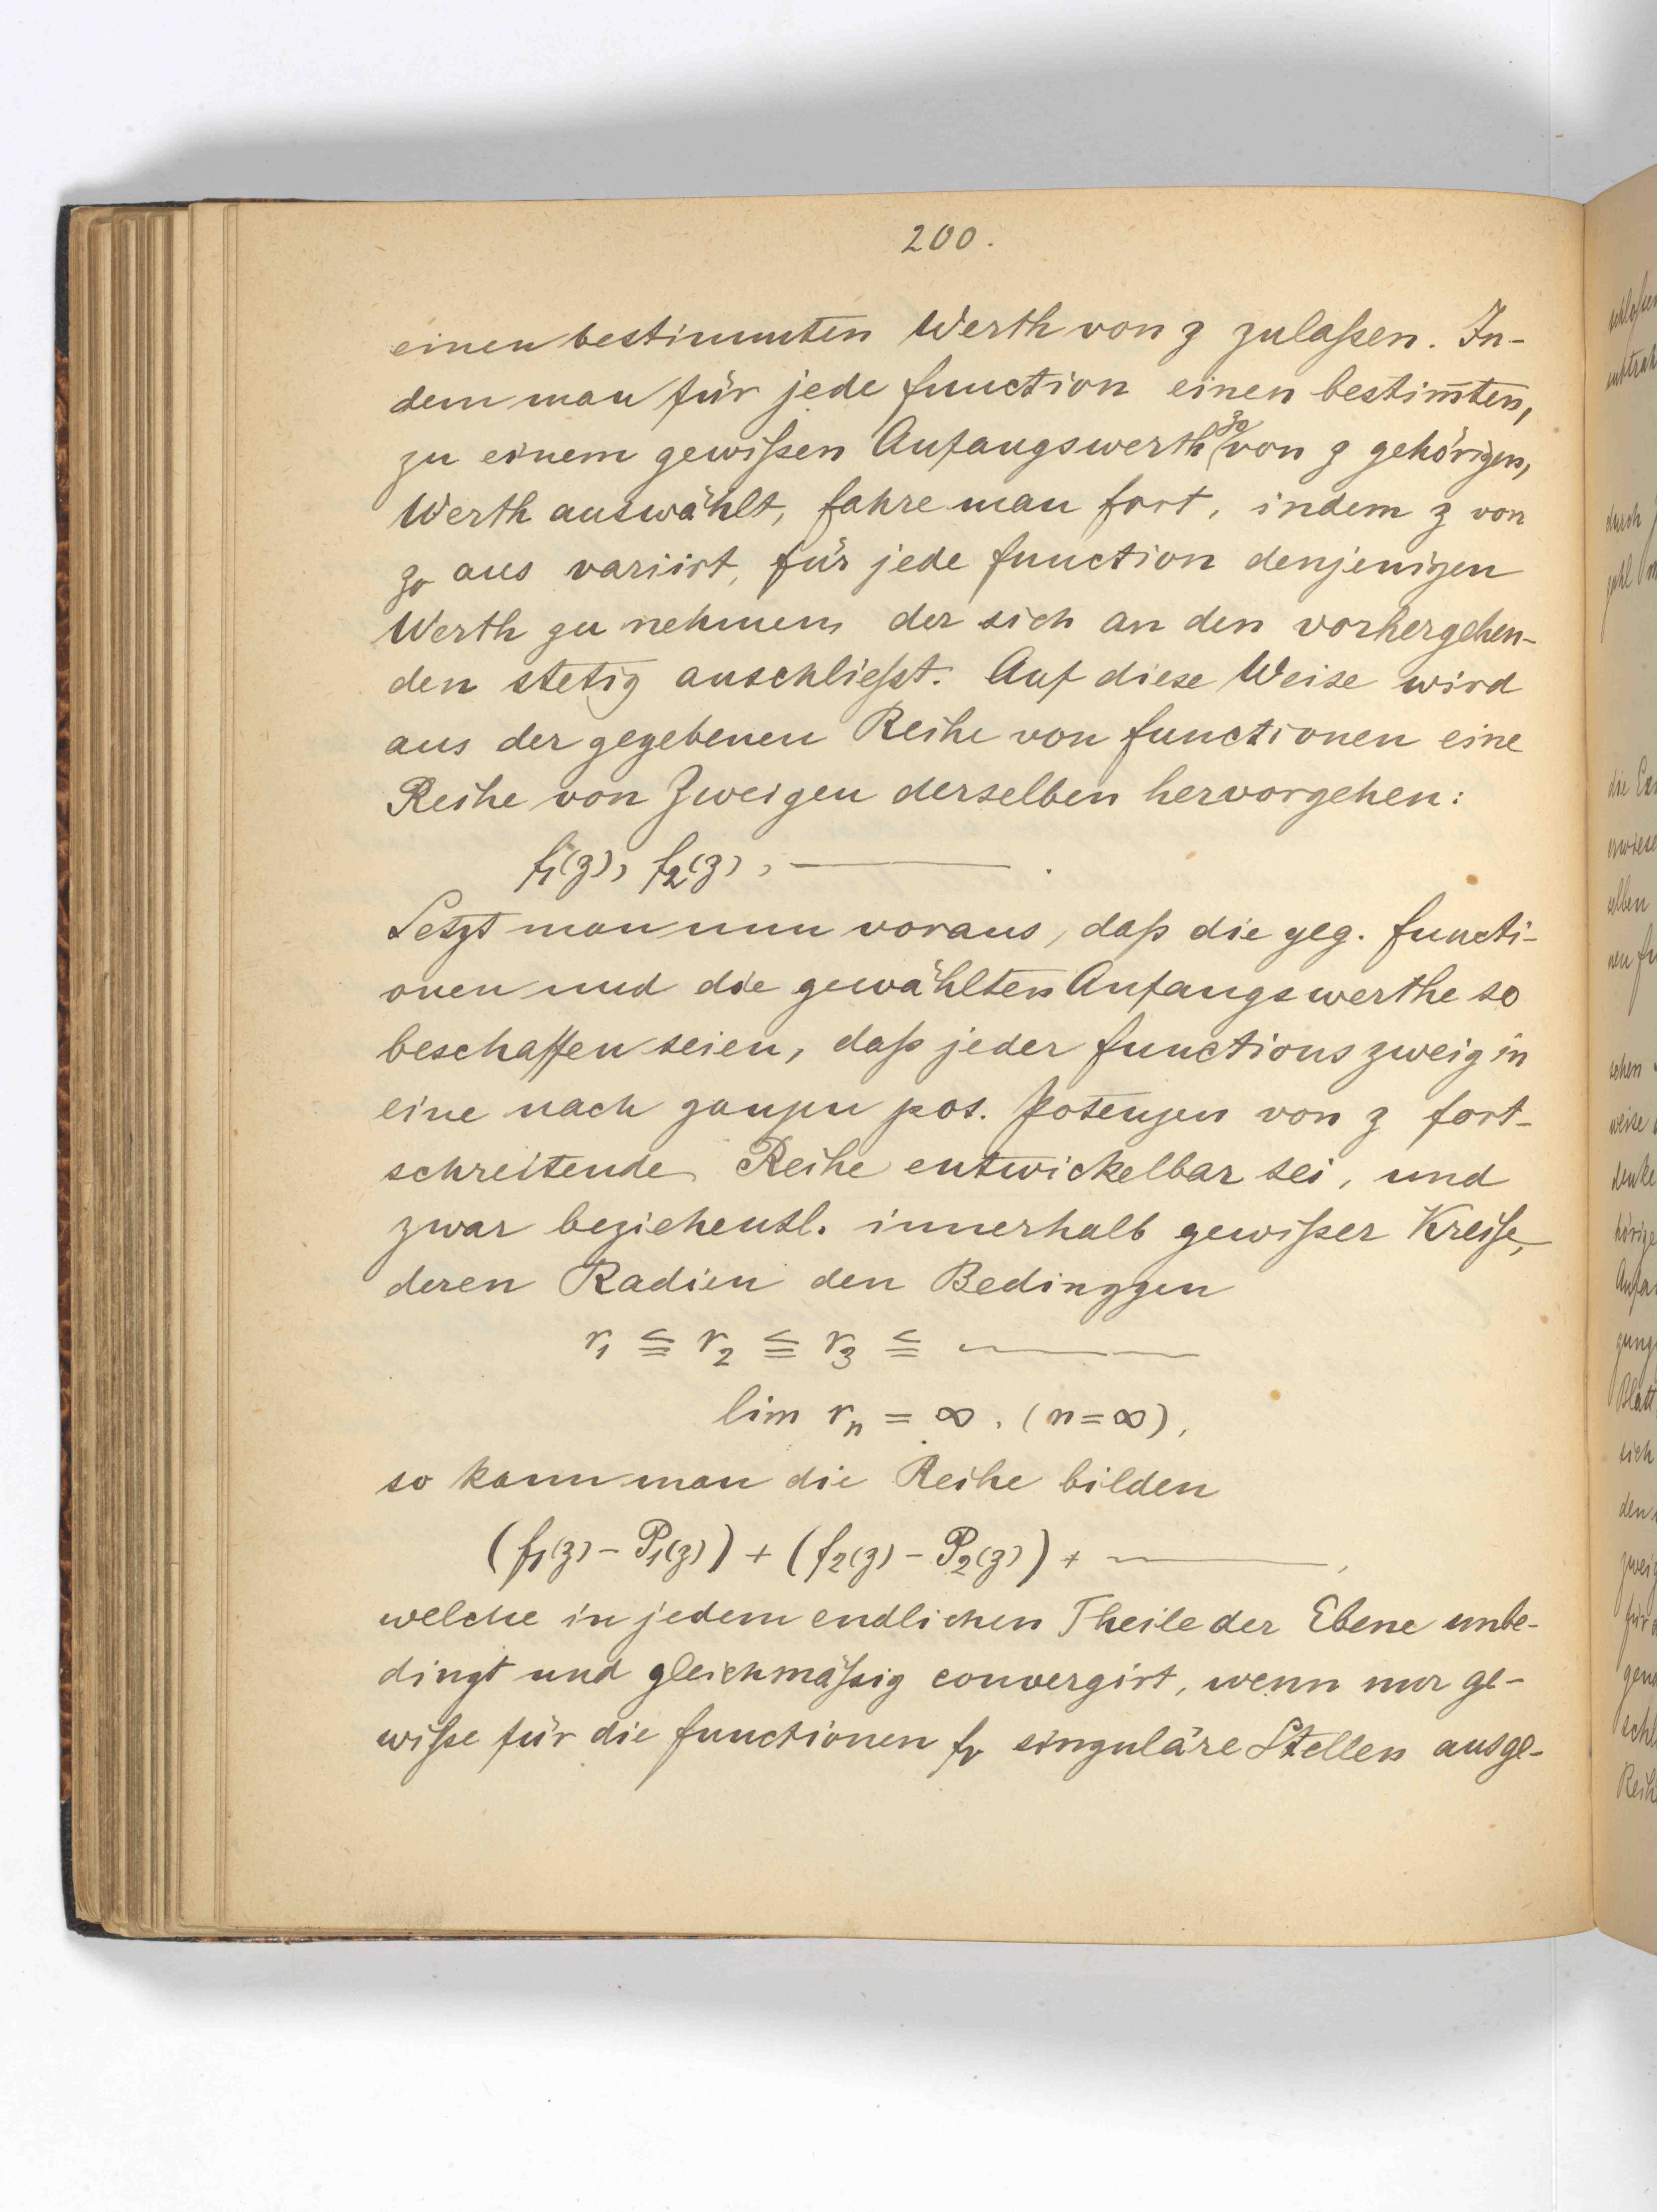 200.
einen bestimmten Werth von z zulaßen. In-
dem man für jede function einen bestim̅ten,
zu einem gewißen Anfangswerth z₀ von z gehörigen,
Werth auswählt, fahre man fort, indem z von
z₀ aus variirt, für jede function denjenigen
Werth zu nehmen, der sich an den vorhergehen-
den stetig anschließt. Auf diese Weise wird
aus der gegebenen Reihe von functionen eine
Reihe von Zweigen derselben hervorgehen:
f₁(z), f₂(z), ——— .
Setzt man nun voraus, daß die geg. functi-
onen und die gewählten Anfangswerthe so
beschaffen seien, daß jeder functionszweig in
eine nach ganzen pos. Potenzen von z fort-
schreitende Reihe entwickelbar sei, und
zwar beziehentl. innerhalb gewißer Kreise,
deren Radien den Bedinggen
r₁ ≦ r₂ ≦ r₃ ≦ ———
lim rₙ = ∞. (n=∞),
so kann man die Reihe bilden
(f₁(z) – P₁(z)) + (f₂(z) – P₂(z)) + ———,
welche in jedem endlichen Theile der Ebene unbe-
dingt und gleichmäßig convergirt, wenn nur ge-
wiße für die functionen fᵥ singuläre Stellen ausge-